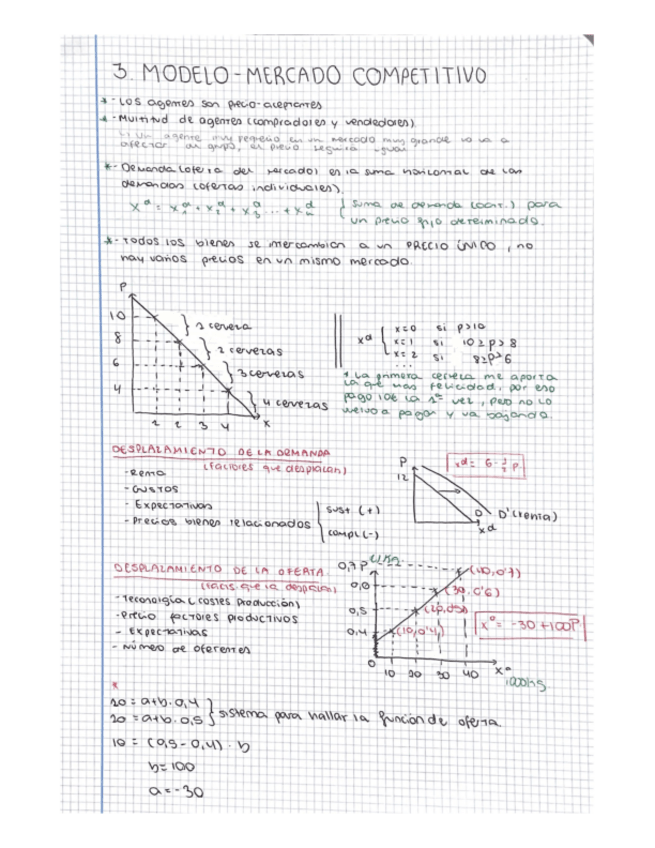 3. MODELO - MERCADO COMPETITIVO
* - Los agentes son precio-aceptantes
* - Multitud de agentes (compradores y vendedores)
↳ Un agente muy pequeño en un mercado muy grande no va a
afectar al grupo, el precio seguirá igual
* - Demanda (oferta del mercado) es la suma horizontal de las
demandas (ofertas individuales).
x^d = x_1^d + x_2^d + x_3^d ... + x_n^d { suma de demanda (cant.) para
un precio fijo determinado.
* - Todos los bienes se intercambian a un PRECIO ÚNICO, no
hay varios precios en un mismo mercado.
P
10
8
6
4
1 2 3 4 x
} 1 cerveza
} 2 cervezas
} 3 cervezas
} 4 cervezas
x^d { x=0 si p>10
x=1 si 10≥p>8
x=2 si 8≥p>6
...
* La primera cerveza me aporta
la que más felicidad, por eso
pago 10€ la 1ª vez, pero no lo
vuelvo a pagar y va bajando.
DESPLAZAMIENTO DE LA DEMANDA
(factores que desplazan)
- Renta
- Gustos
- Expectativas
- Precios bienes relacionados { sust (+)
compl (-)
P
12
x^d = 6 - 1/2 p
D D' (renta)
x^d
DESPLAZAMIENTO DE LA OFERTA
- Tecnología (costes producción)
- Precio factores productivos
- Expectativas
- Número de oferentes
0,7 P
0,6
0,5
0,4
0
10 20 30 40 x^o
(40, 0'7)
(30, 0'6)
(20, 0'5)
(10, 0'4)
x^o = -30 + 100P
*
10 = a + b · 0,4
20 = a + b · 0,5 } sistema para hallar la función de oferta.
10 = (0,5 - 0,4) · b
b = 100
a = -30